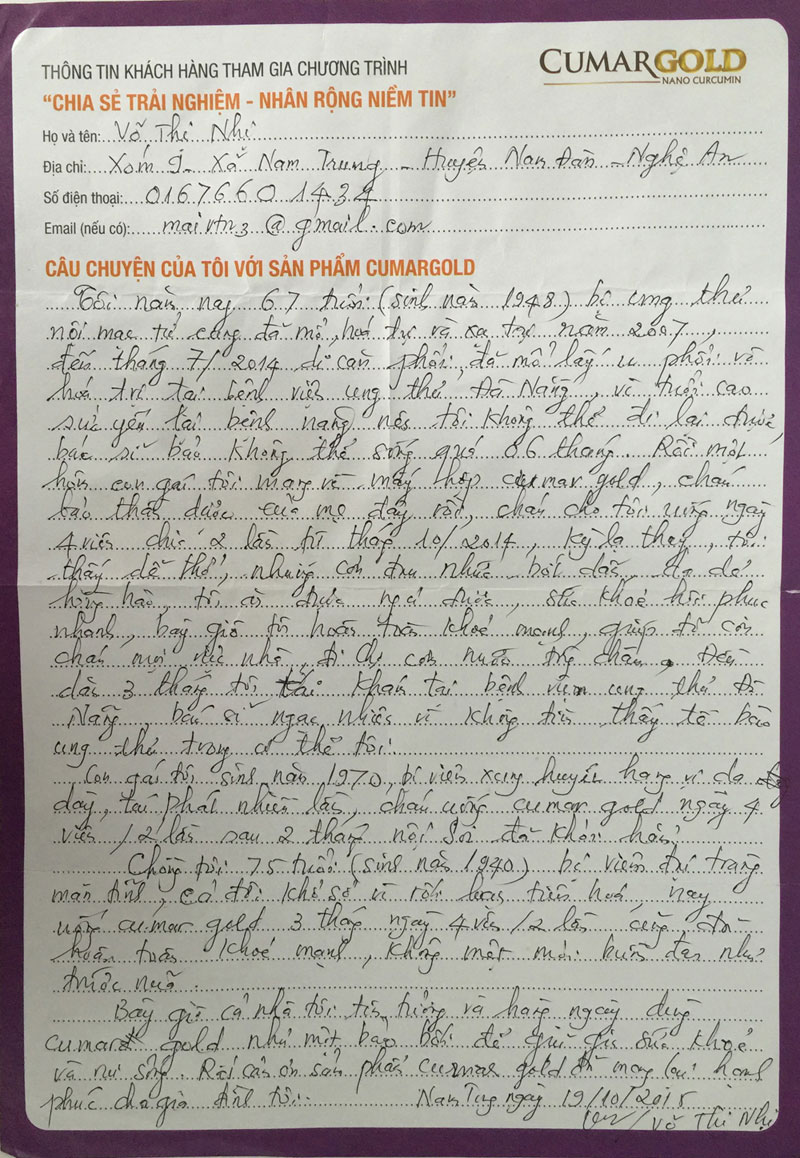 CUMARGOLD
NANO CURCUMIN
THÔNG TIN KHÁCH HÀNG THAM GIA CHƯƠNG TRÌNH
"CHIA SẺ TRẢI NGHIỆM - NHÂN RỘNG NIỀM TIN"
Họ và tên: Võ Thị Nhị
Địa chỉ: Xóm 9 - Xã Nam Trung - Huyện Nam Đàn - Nghệ An
Số điện thoại: 0167660 1434
Email (nếu có): maivtn3@gmail.com
CÂU CHUYỆN CỦA TÔI VỚI SẢN PHẨM CUMARGOLD
Tôi năm nay 67 tuổi (sinh năm 1948) bị ung thư
nội mạc tử cung đã mổ, hoá trị và xạ trị năm 2007,
đến tháng 7/2014 di căn phổi, đã mổ lấy u phổi và
hoá trị tại bệnh viện ung thư Đà Nẵng, vì tuổi cao
sức yếu lại bệnh nặng nên tôi không thể đi lại được,
bác sĩ bảo không thể sống quá 06 tháng. Rồi một
hôm con gái tôi mang về mấy hộp cumar gold, cháu
bảo thần dược của mẹ đây rồi, cháu cho tôi uống ngày
4 viên chia 2 lần từ tháng 10/2014, kỳ lạ thay, tôi
thấy dễ thở, những cơn đau nhức bớt dần, da dẻ
hồng hào, tôi ăn được ngủ được, sức khoẻ hồi phục
nhanh, bây giờ tôi hoàn toàn khoẻ mạnh, giúp đỡ con
cháu mọi việc nhà, đi chợ cơm nước trông cháu. Đều
đặn 3 tháng tôi tái khám tại bệnh viện ung thư Đà
Nẵng, bác sĩ ngạc nhiên vì không tìm thấy tế bào
ung thư trong cơ thể tôi.
Con gái tôi sinh năm 1970, bị viêm xung huyết hang vị dạ
dày, tái phát nhiều lần, cháu uống cumar gold ngày 4
viên /2 lần sau 2 tháng nội soi đã khỏi hẳn.
Chồng tôi 75 tuổi (sinh năm 1940) bị viêm đại tràng
mãn tính, cả đời khổ sở vì rối loạn tiêu hoá, nay
uống cumar gold 3 tháng ngày 4 viên /2 lần cũng đã
hoàn toàn khoẻ mạnh, không mệt mỏi buồn đau như
trước nữa.
Bây giờ cả nhà tôi tin tưởng và hàng ngày dùng
cumar gold như một bảo bối để giữ gìn sức khoẻ
và vui sống. Rất cảm ơn sản phẩm cumar gold đã mang lại hạnh
phúc cho gia đình tôi. Nam Trung ngày 19/10/2015
Võ Thị Nhị